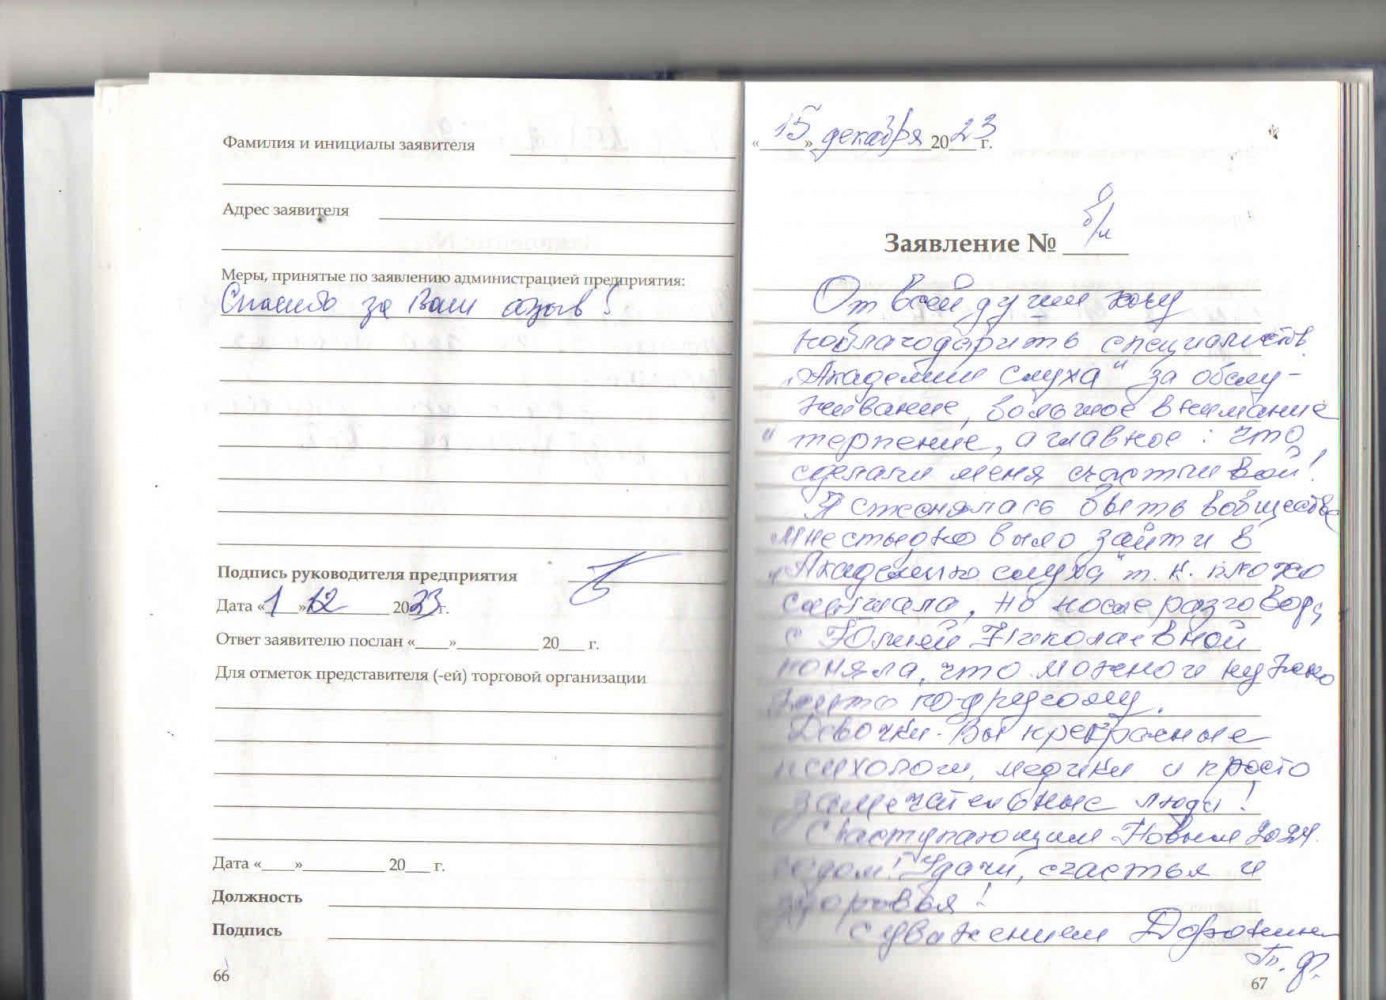 Фамилия и инициалы заявителя
Адрес заявителя
Меры, принятые по заявлению администрацией предприятия:
Спасибо за Ваш отзыв!
Подпись руководителя предприятия
Дата «1» 12 2023 г.
Ответ заявителю послан «____» __________ 20___ г.
Для отметок представителя (-ей) торговой организации
Дата «____» __________ 20___ г.
Должность
Подпись
66
«15» декабря 2023 г.
Заявление № б/н
От всей души хочу
поблагодарить специалистов
„Академии слуха" за обслу-
живание, большое внимание
терпение, а главное: что
сделали меня счастливой!
Я стеснялась быть в обществе
мне стыдно было зайти в
„Академию слуха" т.к. плохо
слышала, но после разговора
с Юлией Николаевной
поняла, что можно и нужно
жить по другому.
Девочки. Вы прекрасные
психологи, медики и просто
замечательные люди!
С наступающим Новым 2024
годом! Удачи, счастья и
здоровья!
с уважением
67